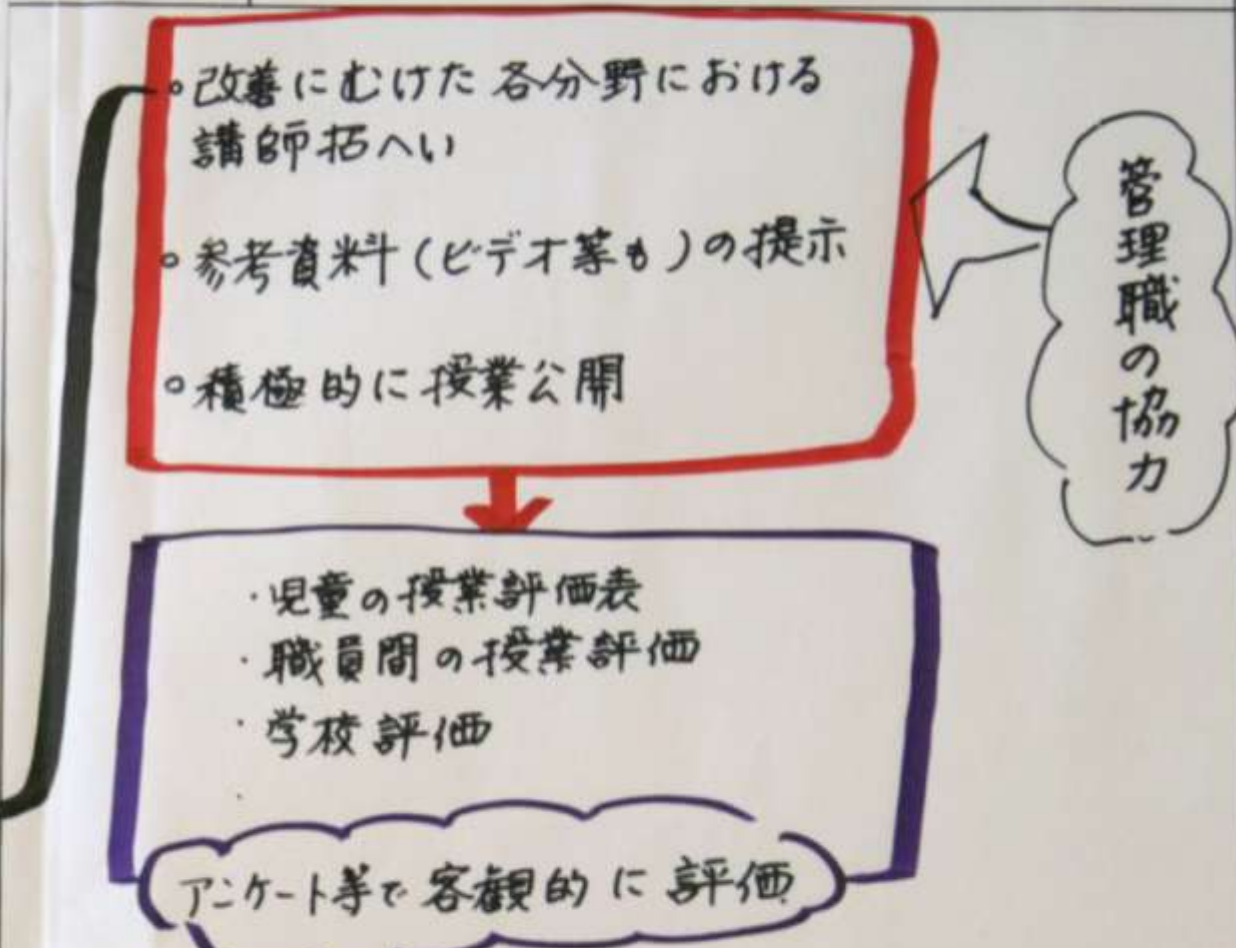 。改善にむけた各分野における
講師招へい
。参考資料(ビデオ等も)の提示
。積極的に授業公開
管理職の協力
・児童の授業評価表
・職員間の授業評価
・学校評価
・
アンケート等で客観的に評価